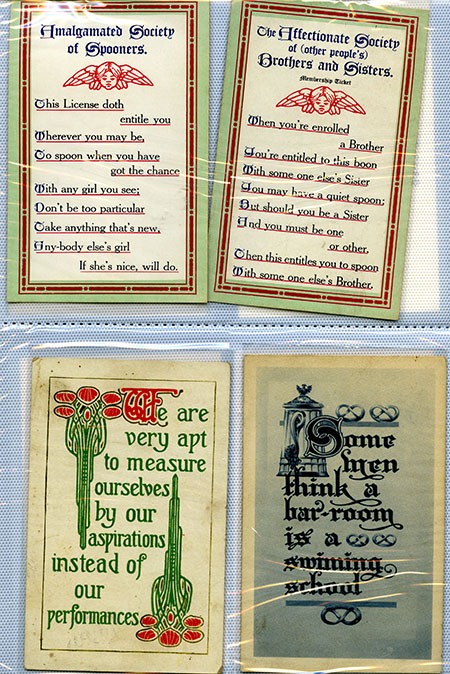 Amalgamated Society
of Spooners.
This License doth
entitle you
Wherever you may be,
To spoon when you have
got the chance
With any girl you see;
Don't be too particular
Take anything that's new,
Any-body else's girl
If she's nice, will do.
The Affectionate Society
of (other people's)
Brothers and Sisters.
Membership Ticket
When you're enrolled
a Brother
You're entitled to this boon
With some one else's Sister
You may have a quiet spoon;
But should you be a Sister
And you must be one
or other,
Then this entitles you to spoon
With some one else's Brother.
We are
very apt
to measure
ourselves
by our
aspirations
instead of
our
performances
Some
men
think a
bar-room
is a
swiming
school